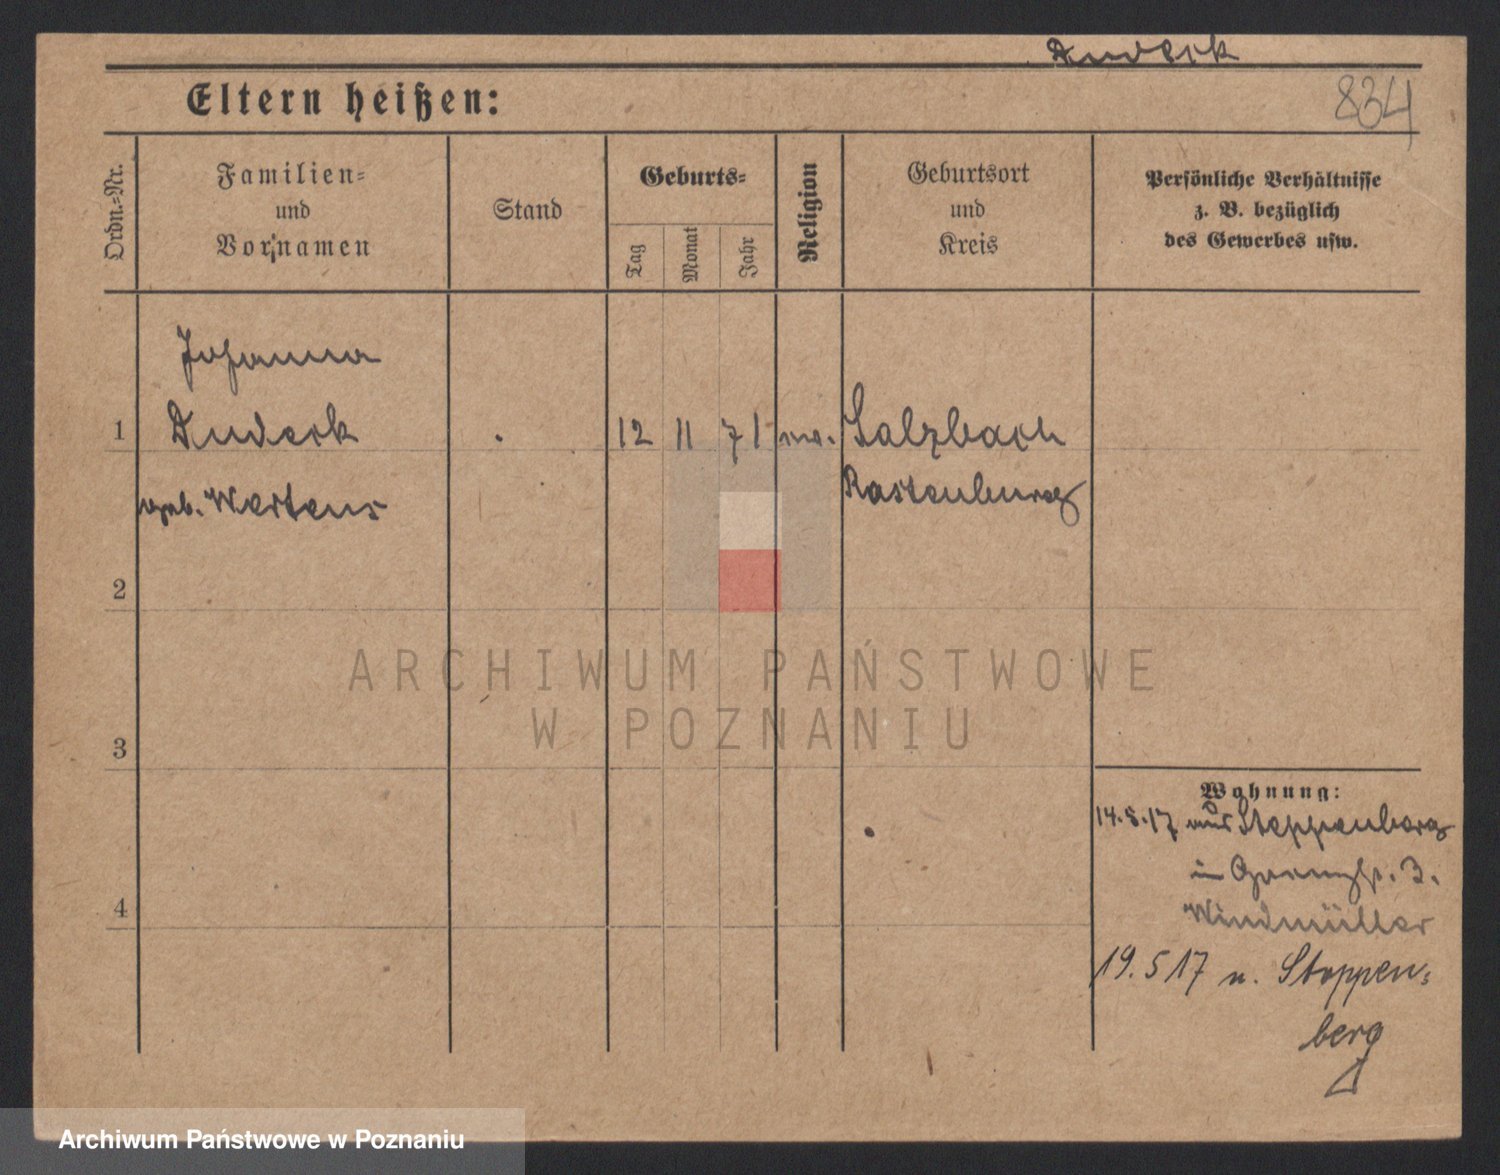 Dudeck
Eltern heißen:
834
Ordn.-Nr.
Familien-
und
Vornamen
Stand
Geburts-
Tag
Monat
Jahr
Religion
Geburtsort
und
Kreis
Persönliche Verhältnisse
z. B. bezüglich
des Gewerbes usw.
Johanna
1 Dudeck 12 11 71 Salzbach
geb. Mertens Rastenburg
2
ARCHIWUM PAŃSTWOWE
W POZNANIU
3
Wohnung:
14.5.17 aus Stoppenberg
in 3.
Windmüller
4
19.5 17 n. Stoppen-
berg
Archiwum Państwowe w Poznaniu